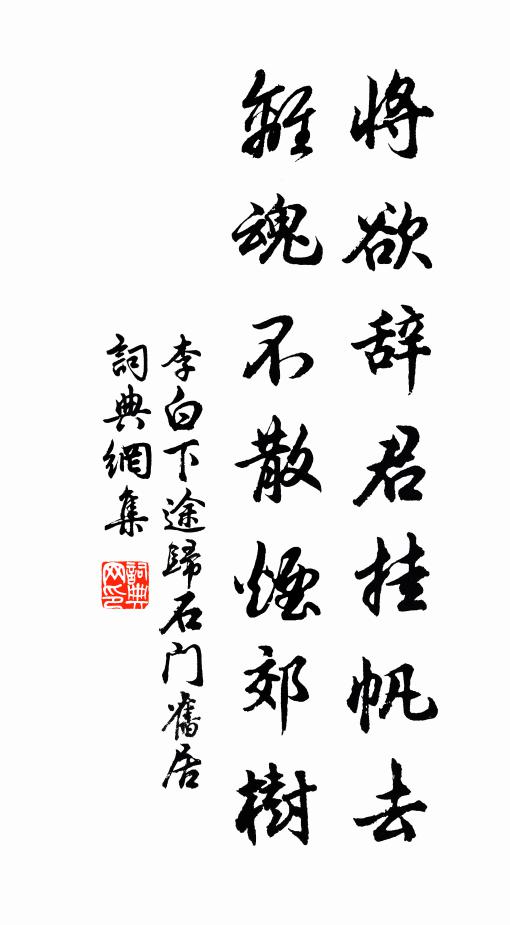 将欲辞君挂帆去
離魂不散煙郊樹
李白下途歸石门舊居
詞典網集
詞典网印